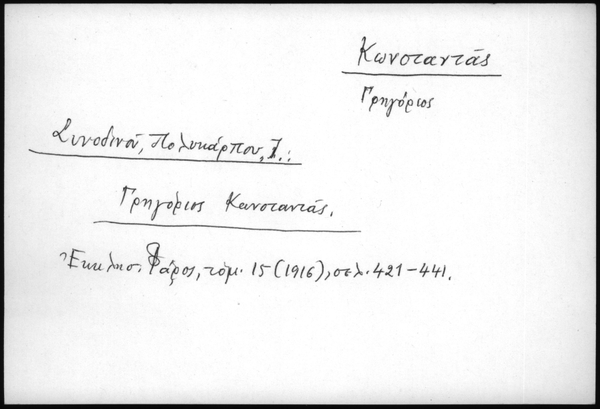 Κωνσταντάς
Γρηγόριος
Συνοδινού, Πολυκάρπου,
Γρηγόριος Κωνσταντάς.
Ἐκκλησ. Φάρος, τόμ. 15 (1916), σελ. 421-441.